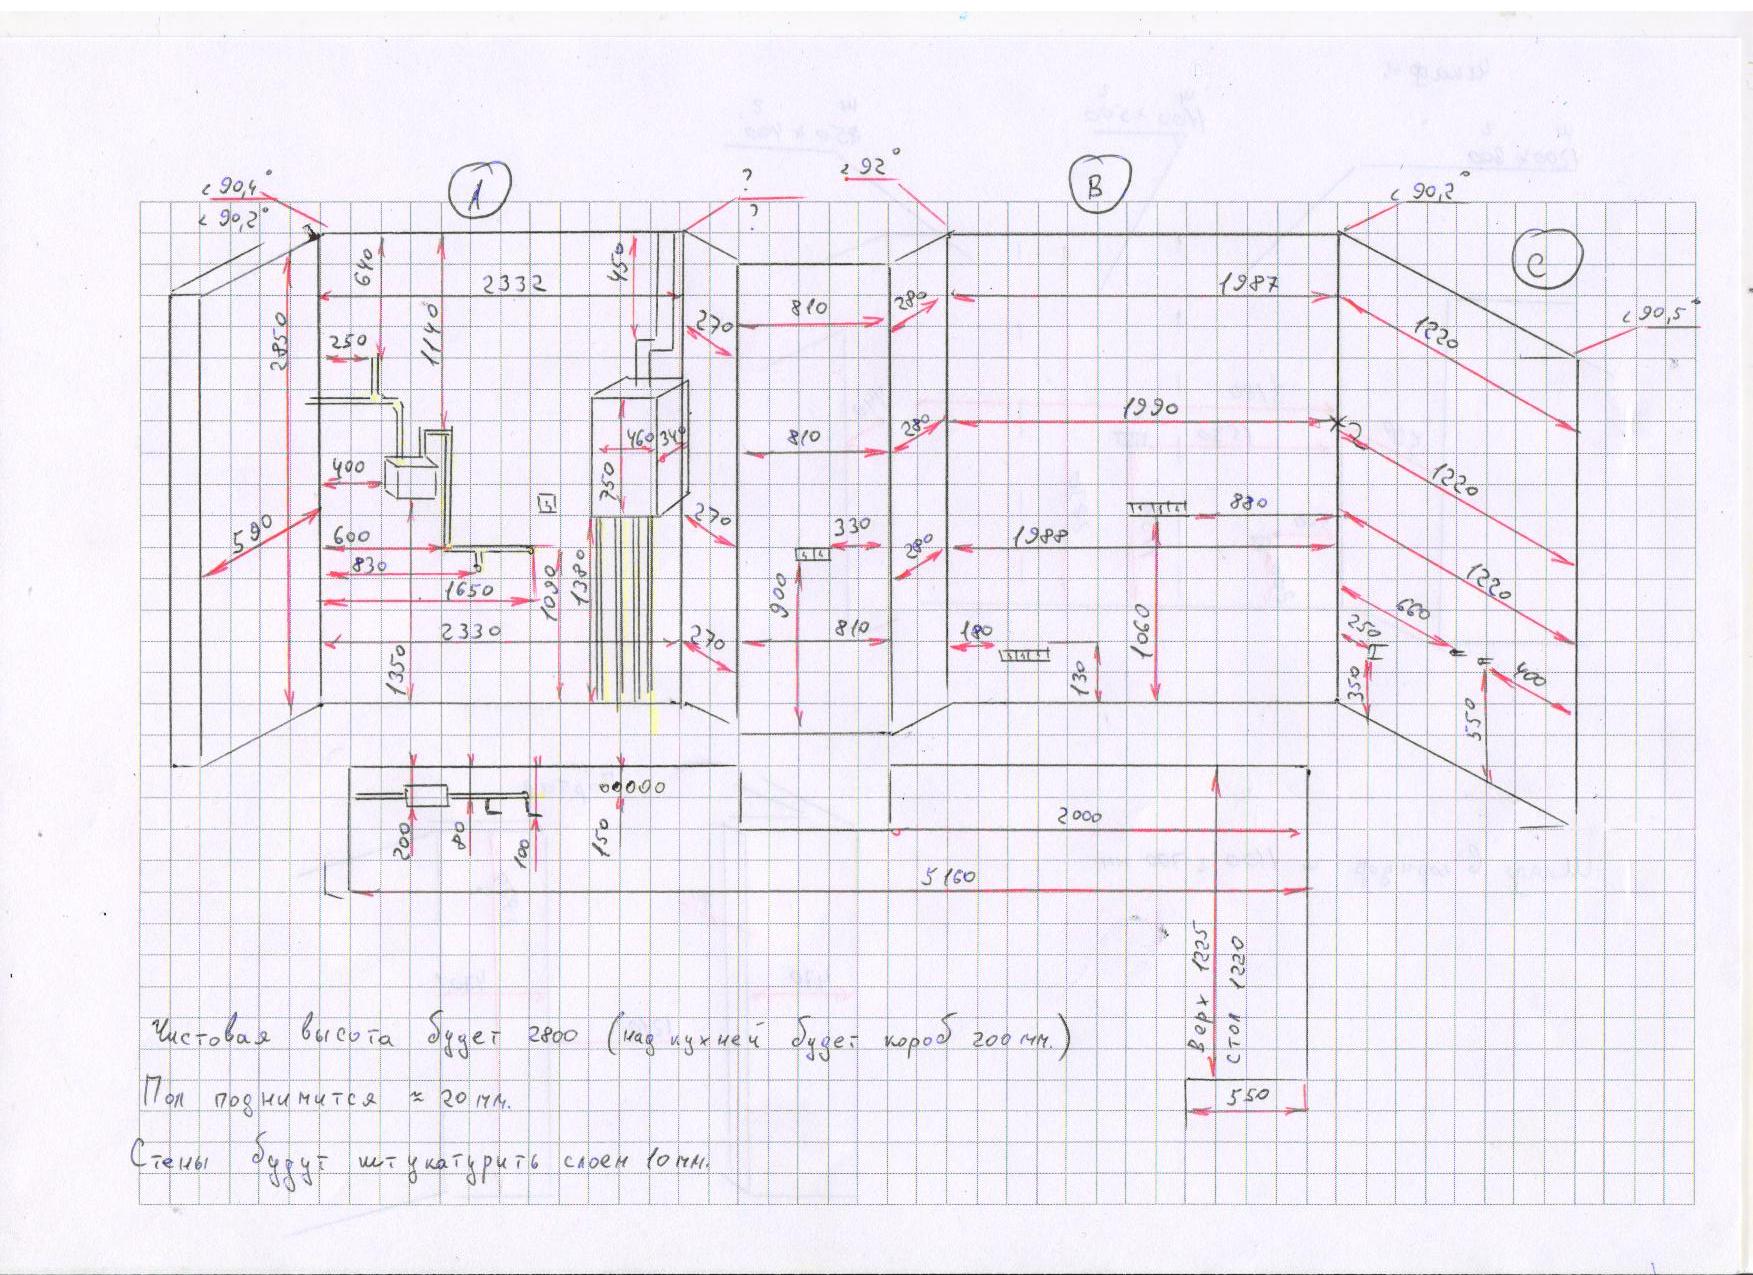 < 90,4°
< 90,2°
A
?
?
< 92°
B
< 90,2°
C
< 90,5°
640
1140
450
2332
810
280
1987
1220
2850
250
270
460
340
750
810
280
1990
1220
400
590
600
830
1650
1090
1380
270
330
900
280
1988
880
1220
2330
1350
270
810
180
130
1060
660
250
350
400
550
200
80
100
150
2000
5160
Верх 1225
Стол 1220
550
Чистовая высота будет 2800 (над кухней будет короб 200 мм.)
Пол поднимится ≈ 20 мм.
Стены будут штукатурить слоем 10 мм.